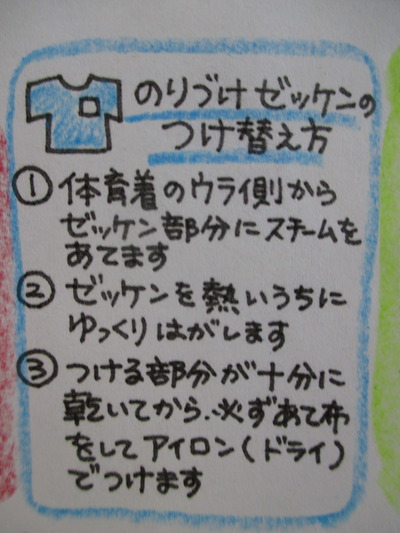 のりづけゼッケンの
つけ替え方
① 体育着のウラ側から
ゼッケン部分にスチームを
あてます
② ゼッケンを熱いうちに
ゆっくりはがします
③ つける部分が十分に
乾いてから、必ずあて布
をしてアイロン(ドライ)
でつけます